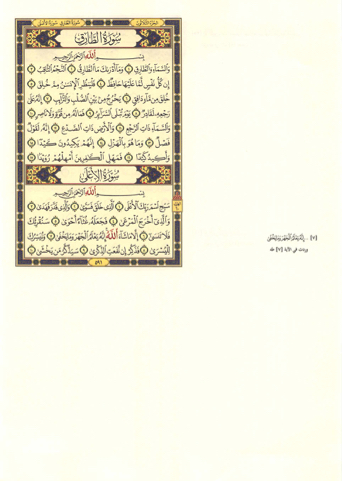 سُورَةُ الطَّارِقِ
بِسْمِ اللَّهِ الرَّحْمَٰنِ الرَّحِيمِ
وَالسَّمَاءِ وَالطَّارِقِ ١ وَمَا أَدْرَاكَ مَا الطَّارِقُ ٢ النَّجْمُ الثَّاقِبُ ٣
إِن كُلُّ نَفْسٍ لَّمَّا عَلَيْهَا حَافِظٌ ٤ فَلْيَنظُرِ الْإِنسَانُ مِمَّ خُلِقَ ٥
خُلِقَ مِن مَّاءٍ دَافِقٍ ٦ يَخْرُجُ مِن بَيْنِ الصُّلْبِ وَالتَّرَائِبِ ٧ إِنَّهُ عَلَىٰ
رَجْعِهِ لَقَادِرٌ ٨ يَوْمَ تُبْلَى السَّرَائِرُ ٩ فَمَا لَهُ مِن قُوَّةٍ وَلَا نَاصِرٍ ١٠
وَالسَّمَاءِ ذَاتِ الرَّجْعِ ١١ وَالْأَرْضِ ذَاتِ الصَّدْعِ ١٢ إِنَّهُ لَقَوْلٌ
فَصْلٌ ١٣ وَمَا هُوَ بِالْهَزْلِ ١٤ إِنَّهُمْ يَكِيدُونَ كَيْدًا ١٥
وَأَكِيدُ كَيْدًا ١٦ فَمَهِّلِ الْكَافِرِينَ أَمْهِلْهُمْ رُوَيْدًا ١٧
سُورَةُ الْأَعْلَىٰ
بِسْمِ اللَّهِ الرَّحْمَٰنِ الرَّحِيمِ
سَبِّحِ اسْمَ رَبِّكَ الْأَعْلَى ١ الَّذِي خَلَقَ فَسَوَّىٰ ٢ وَالَّذِي قَدَّرَ فَهَدَىٰ ٣
وَالَّذِي أَخْرَجَ الْمَرْعَىٰ ٤ فَجَعَلَهُ غُثَاءً أَحْوَىٰ ٥ سَنُقْرِئُكَ
فَلَا تَنسَىٰ ٦ إِلَّا مَا شَاءَ اللَّهُ إِنَّهُ يَعْلَمُ الْجَهْرَ وَمَا يَخْفَىٰ ٧ وَنُيَسِّرُكَ
لِلْيُسْرَىٰ ٨ فَذَكِّرْ إِن نَّفَعَتِ الذِّكْرَىٰ ٩ سَيَذَّكَّرُ مَن يَخْشَىٰ ١٠
٥٩١
[٧] ... إِنَّهُ يَعْلَمُ الْجَهْرَ وَمَا يَخْفَىٰ